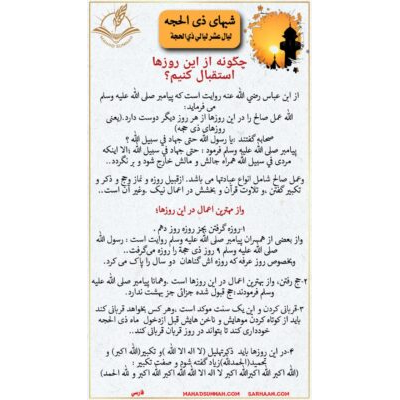 شبهای ذی الحجه
لیال عشر لیالي ذي الحجة
چگونه از این روزها
استقبال کنیم؟
از ابن عباس رضي الله عنه روایت است که پیامبر صلی الله علیه وسلم
می فرماید:
الله عمل صالح را در این روزها از هر روز دیگر دوست دارد.(یعنی
روزهای ذی حجه)
صحابه گفتند :یا رسول الله حتی جهاد في سبیل الله ؟
پیامبر صلی الله علیه وسلم فرمود : حتی جهاد في سبیل الله ؛الا اینکه
مردی في سبیل الله همراه جانش و مالش خارج شود و بر نگردد..
وعمل صالح شامل انواع عبادتها می باشد. ازقبیل روزه و نماز وحج و ذکر و
تکبیر گفتن .و تلاوت قرآن و بخشش در اعمال نیک .وغیر آن است..
واز بهترین اعمال در این روزها؛
۱-روزه گرفتن بجز روزه روز دهم .
واز بعضی از همسران پیامبر صلی الله علیه وسلم روایت است : رسول الله
صلی الله علیه وسلم ۹ روز ذی حجة را روزه می‌گرفت..
وبخصوص روز عرفه که روزه اش گناهان دو سال را پاک می کرد.
۲-حج رفتن، واز بهترین اعمال در این روزها است .وهمانا پیامبر صلی الله علیه
وسلم فرمودند ;حج قبول شده جزائی جز بهشت ندارد.
۳-قربانی کردن و این یک سنت موکد است .وهر کس بخواهد قربانی کند
باید از کوتاه کردن موهایش و ناخن هایش قبل ازدخول ماه ذی الحجه
خودداری کند تا بتواند در روز قربان قربانی کند..
۴-در این روزها باید ذکرتهلیل (لا اله الا الله )و تکبیر(الله اکبر) و
تحمید(الحمدلله)زیاد گفته شود و صفت تکبیر :
(الله اکبر الله اکبرالله اکبر لا اله الا الله الله اکبر الله اکبر و لله الحمد)
فارسي MAHADSUNNAH.COM GARHAAM.COM